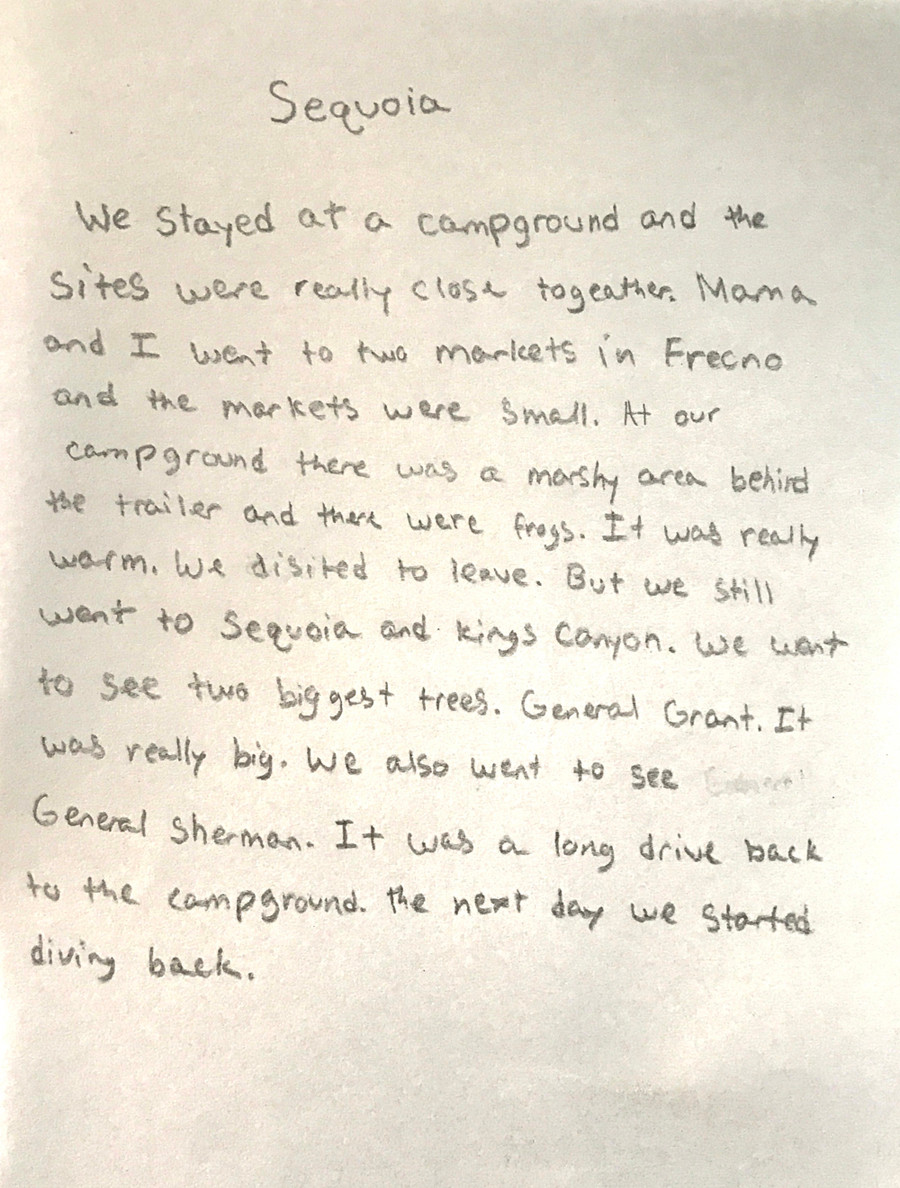 Sequoia
We stayed at a campground and the
sites were really close togeather. Mama
and I went to two markets in Frecno
and the markets were small. At our
campground there was a marshy area behind
the trailer and there were frogs. It was really
warm. We disited to leave. But we still
went to Sequoia and kings Canyon. We went
to see two biggest trees. General Grant. It
was really big. We also went to see
General Sherman. It was a long drive back
to the campground. the next day we started
diving back.